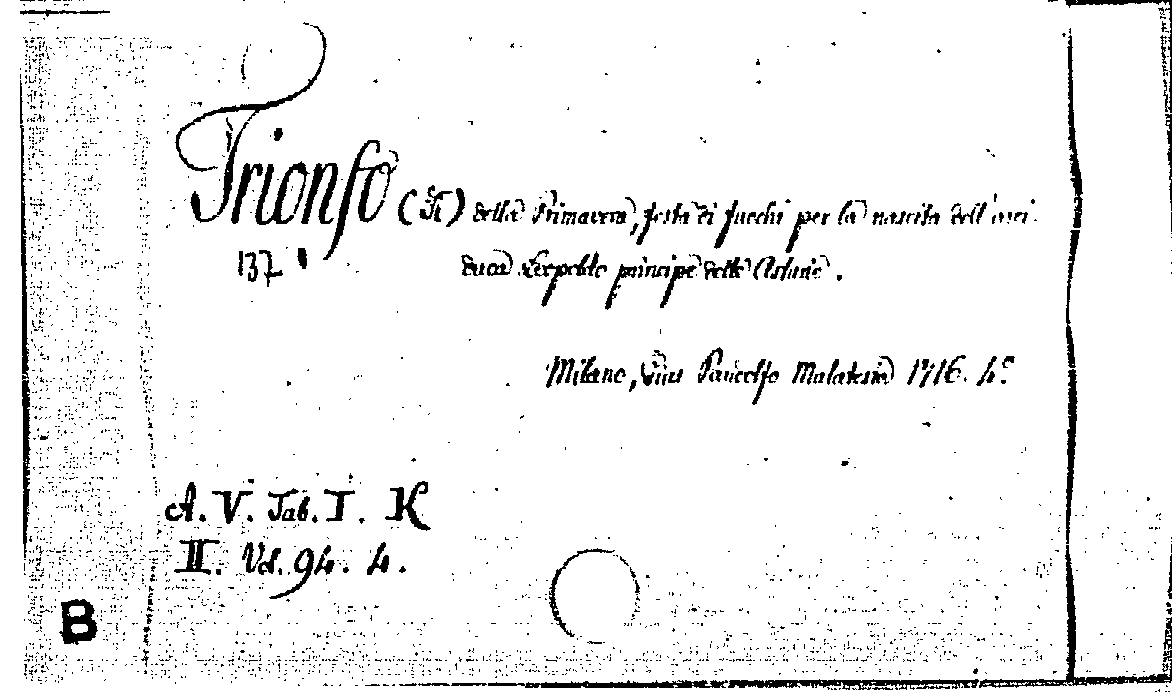 Trionfo (Il) della Primavera, festa di fuochi per la nascita dell'arci-
137 duca Leopoldo principe delle Asturie.
Milano, Gius Pandolfo Malatesta 1716. 4°
A. V. Tab. I. K
II. Vol. 94. 4.
B